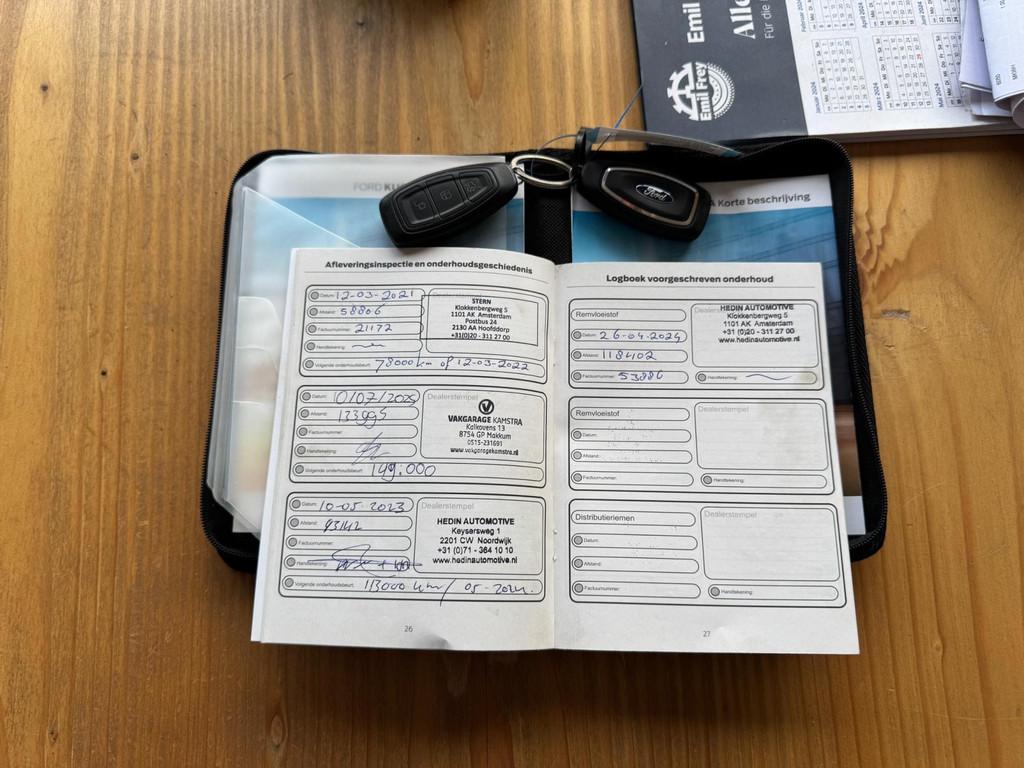 Emil Frey
Emil
Alle
Für die
Januar 2024
Februar 2024
März 2024
April 2024
Mai 2024
FORD KU
Ford
Korte beschrijving
Afleveringsinspectie en onderhoudsgeschiedenis
Datum: 12-03-2021
Afstand: 58806
Factuurnummer: 21172
Handtekening:
Volgende onderhoudsbeurt: 78000 km of 12-03-2022
Dealerstempel
STERN
Klokkenbergweg 5
1101 AK Amsterdam
Postbus 24
2130 AA Hoofddorp
+31(0)20 - 311 27 00
Datum: 10/07/2025
Afstand: 133995
Factuurnummer:
Handtekening:
Volgende onderhoudsbeurt: 149.000
Dealerstempel
VAKGARAGE KAMSTRA
Kalkovens 13
8754 GP Makkum
0515-231691
www.vakgaragekamstra.nl
Datum: 10-05-2023
Afstand: 93142
Factuurnummer:
Handtekening:
Volgende onderhoudsbeurt: 113000 km / 05-2024.
Dealerstempel
HEDIN AUTOMOTIVE
Keysersweg 1
2201 CW Noordwijk
+31 (0)71 - 364 10 10
www.hedinautomotive.nl
26
Logboek voorgeschreven onderhoud
Remvloeistof
Datum: 26-04-2024
Afstand: 118402
Factuurnummer: 53886
Handtekening:
HEDIN AUTOMOTIVE
Klokkenbergweg 5
1101 AK Amsterdam
+31 (0)20 - 311 27 00
www.hedinautomotive.nl
Remvloeistof
Datum:
Afstand:
Factuurnummer:
Dealerstempel
Handtekening:
Distributieriemen
Datum:
Afstand:
Factuurnummer:
Dealerstempel
Handtekening:
27